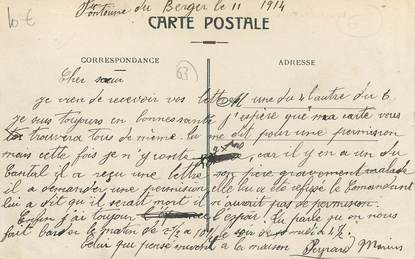 Fontaine du Berger le 11 1914
CARTE POSTALE
CORRESPONDANCE
ADRESSE
10 €
63
Cher sœur
je vien de recevoir vos lettre une du 4 l'autre du 6
je suis toujours en bonne santé j'espère que ma carte vous
trouvera tous de même. tu me dit pour une permission
mais cette fois je n'y conte pas, car il y en a un du
Cantal il a reçu une lettre son père gravement malade
il a demander une permission elle lui a été refusé le Comandant
lui a dit qu'il serait mort il n'aurait pas de permission.
Enfin j'ai toujour l'espoir! tu parle qu'on nous
fait barder le matin de
celui qui pense souvent à la maison Peyrard Marius